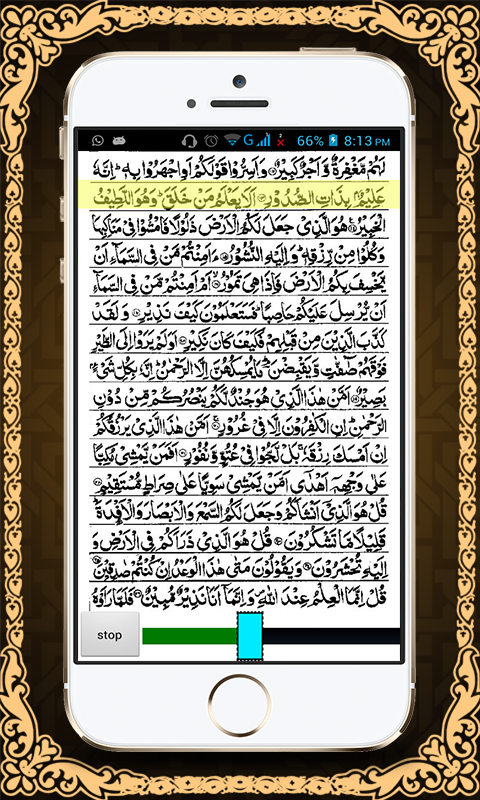 G 66% 8:13 PM
لَهُمْ مَّغْفِرَةٌ وَّاَجْرٌ كَبِيْرٌ وَاَسِرُّوْا قَوْلَكُمْ اَوِ اجْهَرُوْا بِهٖ اِنَّهٗ
عَلِيْمٌۢ بِذَاتِ الصُّدُوْرِ اَلَا يَعْلَمُ مَنْ خَلَقَ وَهُوَ اللَّطِيْفُ
الْخَبِيْرُ هُوَ الَّذِيْ جَعَلَ لَكُمُ الْاَرْضَ ذَلُوْلًا فَامْشُوْا فِيْ مَنَاكِبِهَا
وَكُلُوْا مِنْ رِّزْقِهٖ وَاِلَيْهِ النُّشُوْرُ ءَاَمِنْتُمْ مَّنْ فِي السَّمَآءِ اَنْ
يَّخْسِفَ بِكُمُ الْاَرْضَ فَاِذَا هِيَ تَمُوْرُ اَمْ اَمِنْتُمْ مَّنْ فِي السَّمَآءِ
اَنْ يُّرْسِلَ عَلَيْكُمْ حَاصِبًا فَسَتَعْلَمُوْنَ كَيْفَ نَذِيْرِ وَلَقَدْ
كَذَّبَ الَّذِيْنَ مِنْ قَبْلِهِمْ فَكَيْفَ كَانَ نَكِيْرِ اَوَلَمْ يَرَوْا اِلَى الطَّيْرِ
فَوْقَهُمْ صٰٓفّٰتٍ وَّيَقْبِضْنَ مَا يُمْسِكُهُنَّ اِلَّا الرَّحْمٰنُ اِنَّهٗ بِكُلِّ شَيْءٍۢ
بَصِيْرٌ اَمَّنْ هٰذَا الَّذِيْ هُوَ جُنْدٌ لَّكُمْ يَنْصُرُكُمْ مِّنْ دُوْنِ
الرَّحْمٰنِ اِنِ الْكٰفِرُوْنَ اِلَّا فِيْ غُرُوْرٍ اَمَّنْ هٰذَا الَّذِيْ يَرْزُقُكُمْ
اِنْ اَمْسَكَ رِزْقَهٗ بَلْ لَّجُّوْا فِيْ عُتُوٍّ وَّنُفُوْرٍ اَفَمَنْ يَّمْشِيْ مُكِبًّا
عَلٰى وَجْهِهٖٓ اَهْدٰٓى اَمَّنْ يَّمْشِيْ سَوِيًّا عَلٰى صِرَاطٍ مُّسْتَقِيْمٍ
قُلْ هُوَ الَّذِيْٓ اَنْشَاَكُمْ وَجَعَلَ لَكُمُ السَّمْعَ وَالْاَبْصَارَ وَالْاَفْـِٕدَةَ
قَلِيْلًا مَّا تَشْكُرُوْنَ قُلْ هُوَ الَّذِيْ ذَرَاَكُمْ فِي الْاَرْضِ وَ
اِلَيْهِ تُحْشَرُوْنَ وَيَقُوْلُوْنَ مَتٰى هٰذَا الْوَعْدُ اِنْ كُنْتُمْ صٰدِقِيْنَ
قُلْ اِنَّمَا الْعِلْمُ عِنْدَ اللّٰهِ وَاِنَّمَآ اَنَا نَذِيْرٌ مُّبِيْنٌ فَلَمَّا رَاَوْهُ
stop